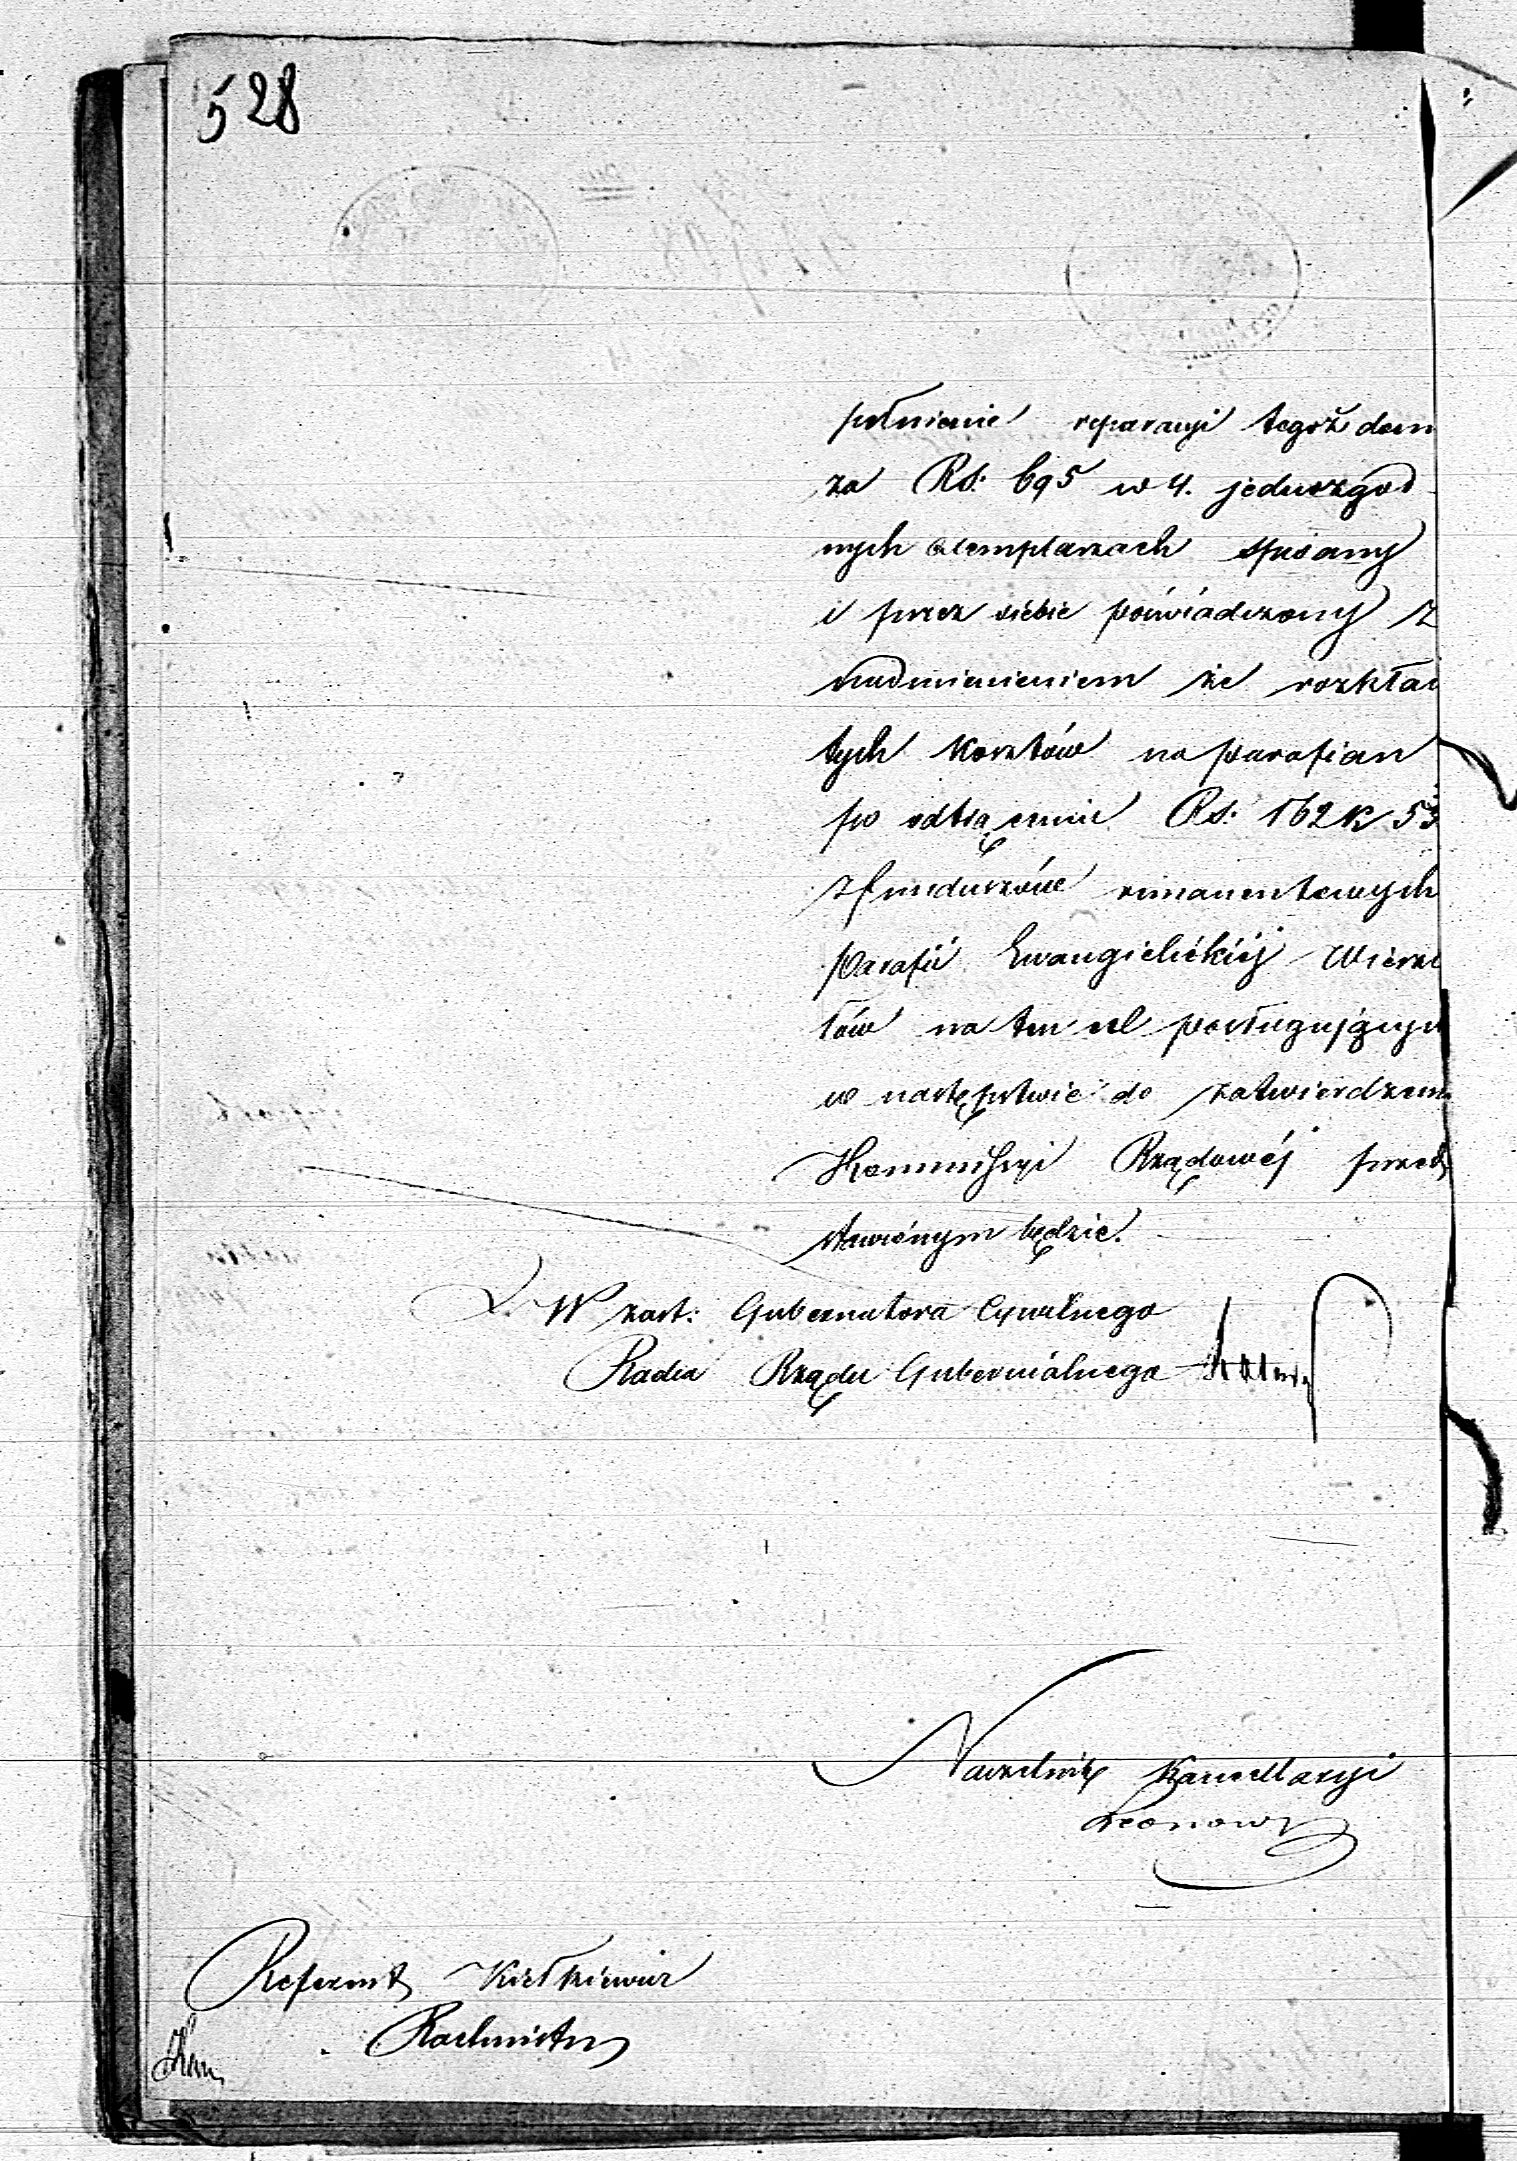 528
pełnienie reparacyi tegoż dom
za Rs. 695 w 4. jednozgod
nych exemplarzach spisany
i przez siebie poświadczony z
nadmienieniem że rozkład
tych kosztów na parafian
po odtrąceniu Rs. 162 k 53
z funduszów rimanentowych
Parafii Ewangielickiéj Wierzb
łów na ten cel posługujących
w następstwie do zatwierdzen
Kommissyi Rządowéj przed
stawiónym będzie.
W zast: Gubernatora Cywilnego
Radca Rządu Gubernialnego
Naczelnik Kancellaryi
Leonow
Referent Kiełkiewicz
Rachmistrz